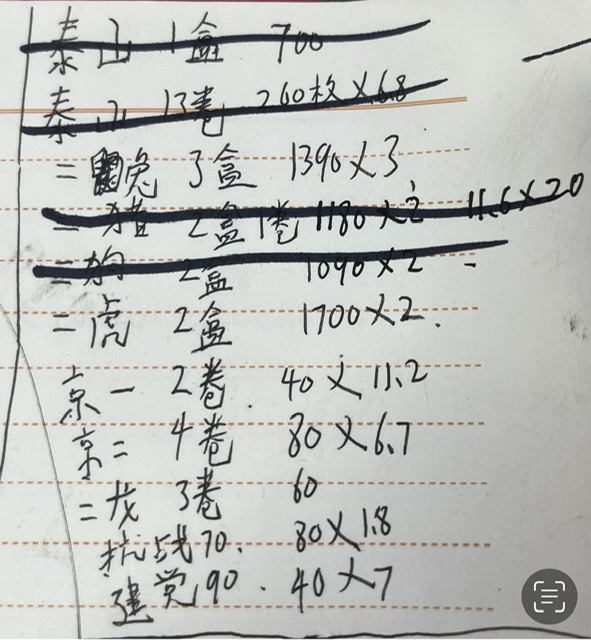 泰山 1盒 700
泰山 13卷 260枚×6.8
=兔 3盒 1390×3
=猪 2盒1卷 1180×2 11.6×20
=狗 2盒 1090×2
=虎 2盒 1700×2.
京一 2卷. 40×11.2
京二 4卷 80×6.7
=龙 3卷 60
抗战70. 80×1.8
建党90. 40×7